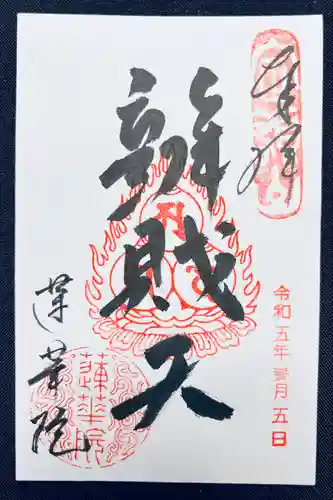 奉拝
辨財天
令和五年 参月 五日
蓮華院
蓮華院